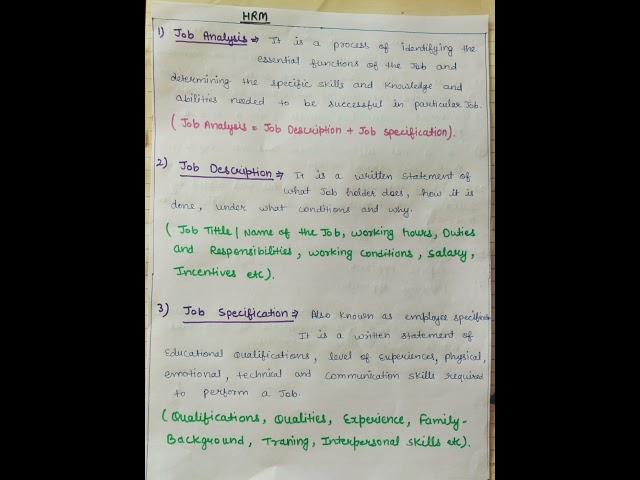 HRM
1) Job Analysis ⇒ It is a process of identifying the
essential functions of the Job and
determining the specific skills and knowledge and
abilities needed to be successful in particular Job.
( Job Analysis = Job Description + Job specification).
2) Job Description ⇒ It is a written statement of
what Job holder does, how it is
done, under what conditions and why.
( Job Tittle / Name of the Job, working hours, Duties
and Responsibilities, working conditions, salary,
Incentives etc).
3) Job Specification ⇒ Also known as employee specification
It is a written statement of
Educational Qualifications, level of Experiences, physical,
emotional, technical and communication skills required
to perform a Job.
( Qualifications, Qualities, Experience, Family-
Background, Traning, Interpersonal skills etc).